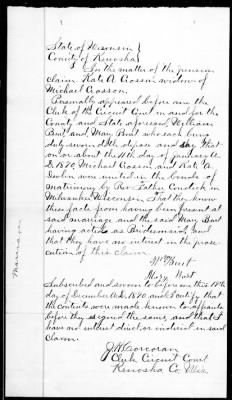 State of Wisconsin
County of Kenosha
In the matter of the pension
claim Kate A Crosson widow of
Michael Crosson.
Personally appeared before me the
Clerk of the Circuit Court in and for the
County and State aforesaid, William
Burt and Mary Burt who each being
duly sworn doth depose and say that
on or about the 10th day of
D. 1870 Michael Crosson and Kate A.
were united in the bonds of
matrimony by Rev Father in
Milwaukee Wisconsin That they know
these facts from having been present at
said marriage and the said Mary Burt
having acted as Bridesmaid, and
that they have no interest in the prose
cution of this claim.
Wm Burt
Mary Burt
Subscribed and sworn to before me this 18th
day of December A.D. and I certify that
the contents were made known to affiants
before they signed the same, and that I
have no interest direct or indirect in said
claim.
J H Corcoran
Clerk Circuit Court
Kenosha Co Wis.
Marriage